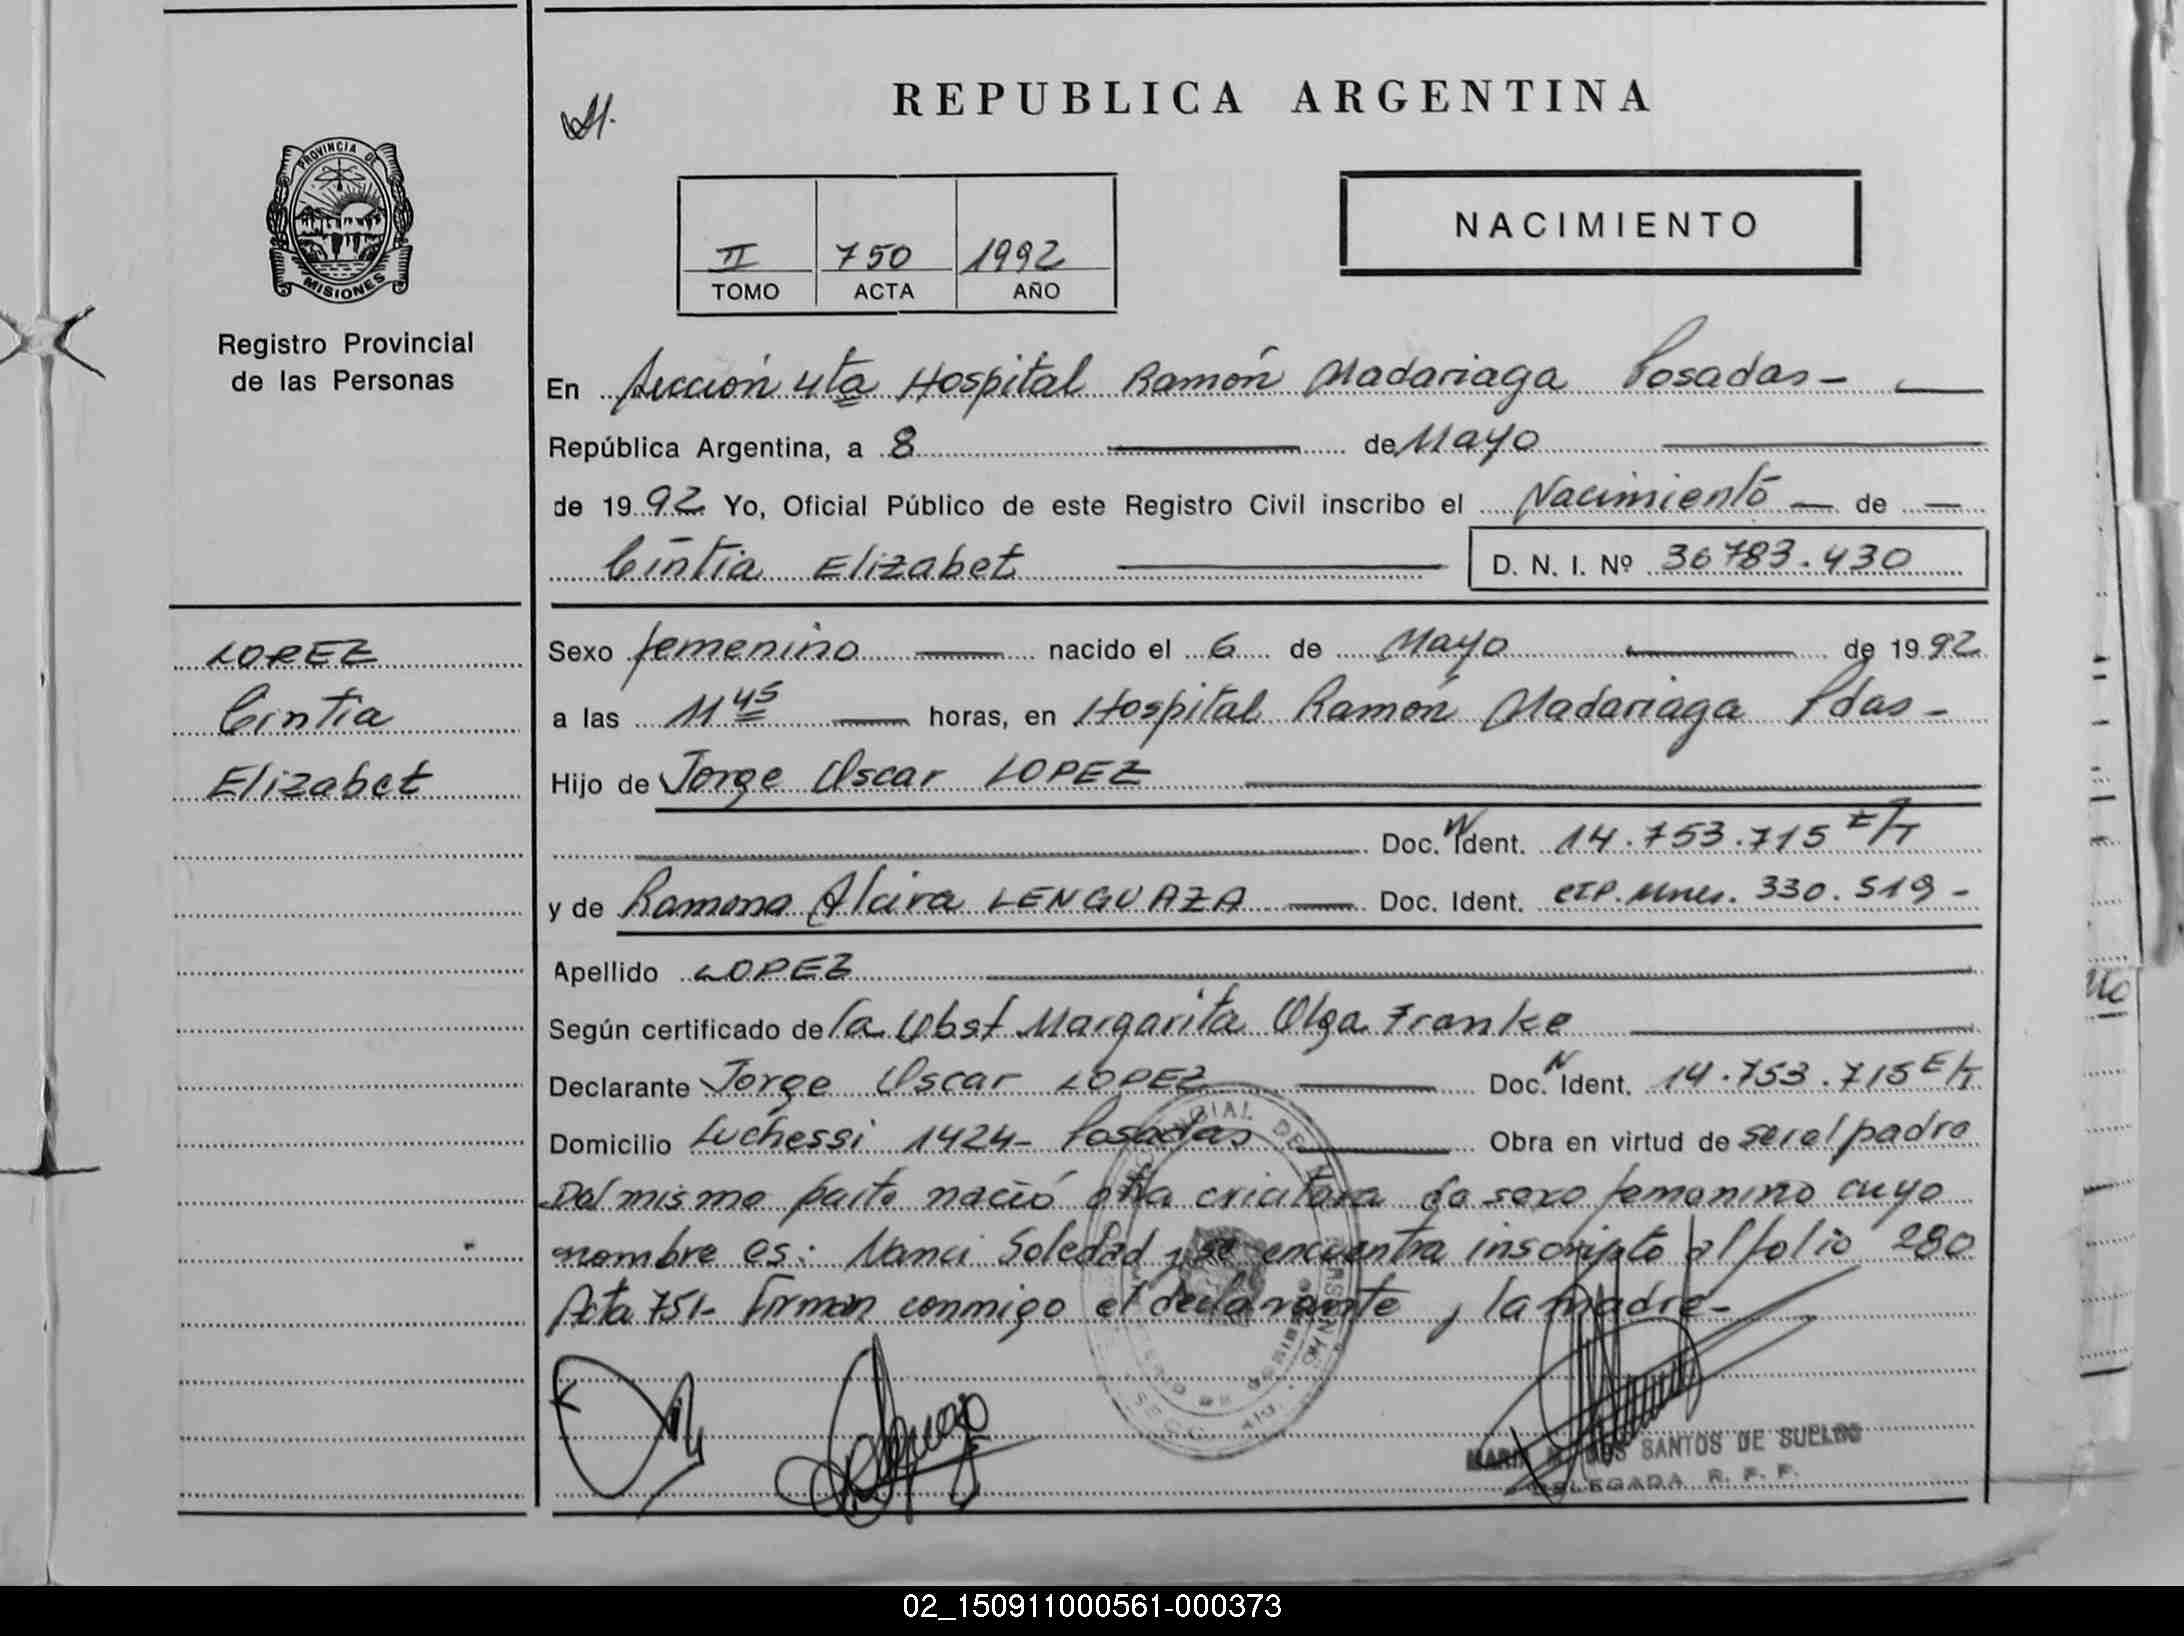 REPUBLICA ARGENTINA
PROVINCIA DE
MISIONES
Registro Provincial
de las Personas
NACIMIENTO
II 750 1992
TOMO ACTA AÑO
En Sección 4ta Hospital Ramón Madariaga Posadas-
República Argentina, a 8 de Mayo
de 1992 Yo, Oficial Público de este Registro Civil inscribo el Nacimiento de
Cintia Elizabet D. N. I. Nº 36783.430
LOPEZ
Cintia
Elizabet
Sexo femenino nacido el 6 de Mayo de 1992
a las 11 45 horas, en Hospital Ramón Madariaga Pdas-
Hijo de Jorge Oscar LOPEZ
Doc. N Ident. 14.753.715 E/T
y de Ramona Alcira LENGUAZA Doc. Ident. CIP. Mnes. 330.519-
Apellido LOPEZ
Según certificado de la Obst Margarita Olga Franke
Declarante Jorge Oscar LOPEZ Doc. N Ident. 14.753.715 E/T
Domicilio Luchessi 1424- Posadas Obra en virtud de ser el padre
Del mismo parto nació otra criatura de sexo femenino cuyo
nombre es: Nanci Soledad y se encuentra inscripto al folio 280
Acta 751- Firman conmigo el declarante y la madre-
SANTOS DE SUELDO
DELEGADA R. P. P.
02_150911000561-000373